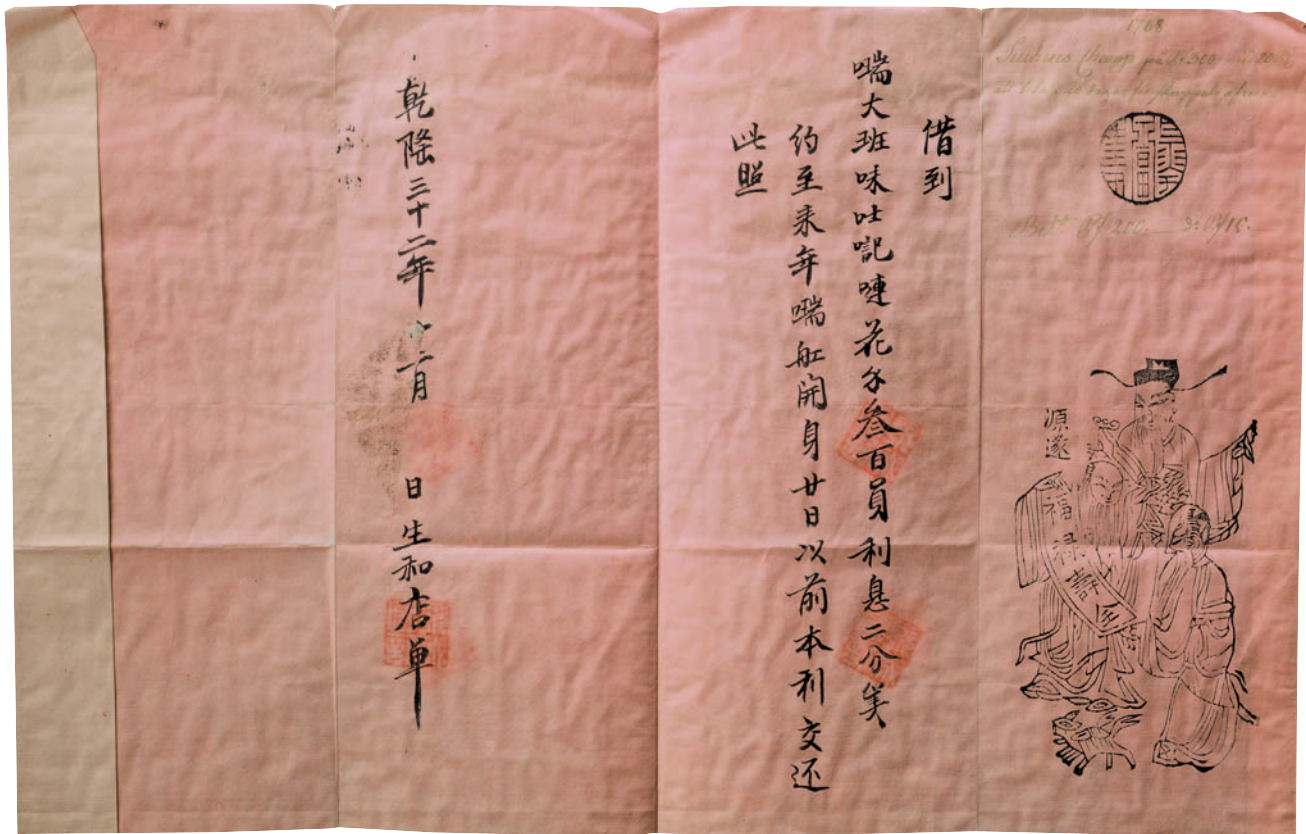 1768
源遂
福禄壽全
借到
喘大班味吐嗹花叁百員利息二分
約至來年喘舡開身廿日以前本利交还
此照
乾隆三十二年十二月 日生和店單